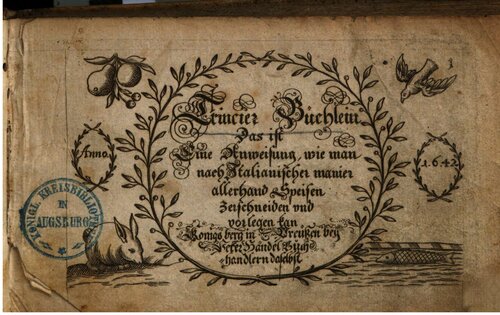 Trincier Büchlein
Das ist
Eine Anweisung, wie man
nach Italianischer manier
allerhand Speisen
Zerschneiden vnd
vorlegen kan
Königsberg in Preußen bey
Peter Händel Buch
handlern daselbst
Anno
1642
3
KÖNIGL. KREISBIBLIOTHEK
IN
AUGSBURG